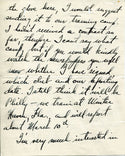 the give here, I would suggest
sending it to our training camp.
I haven't received a contract so
far, therefore I can't say what
camp, but if you would kindly
watch the newspapers you will
see whether I have signed
what club and our starting
date. I still think it will be
Philly - we train at Winter
Haven, Fla. and will report
about March 1st.
I'm very much interested in